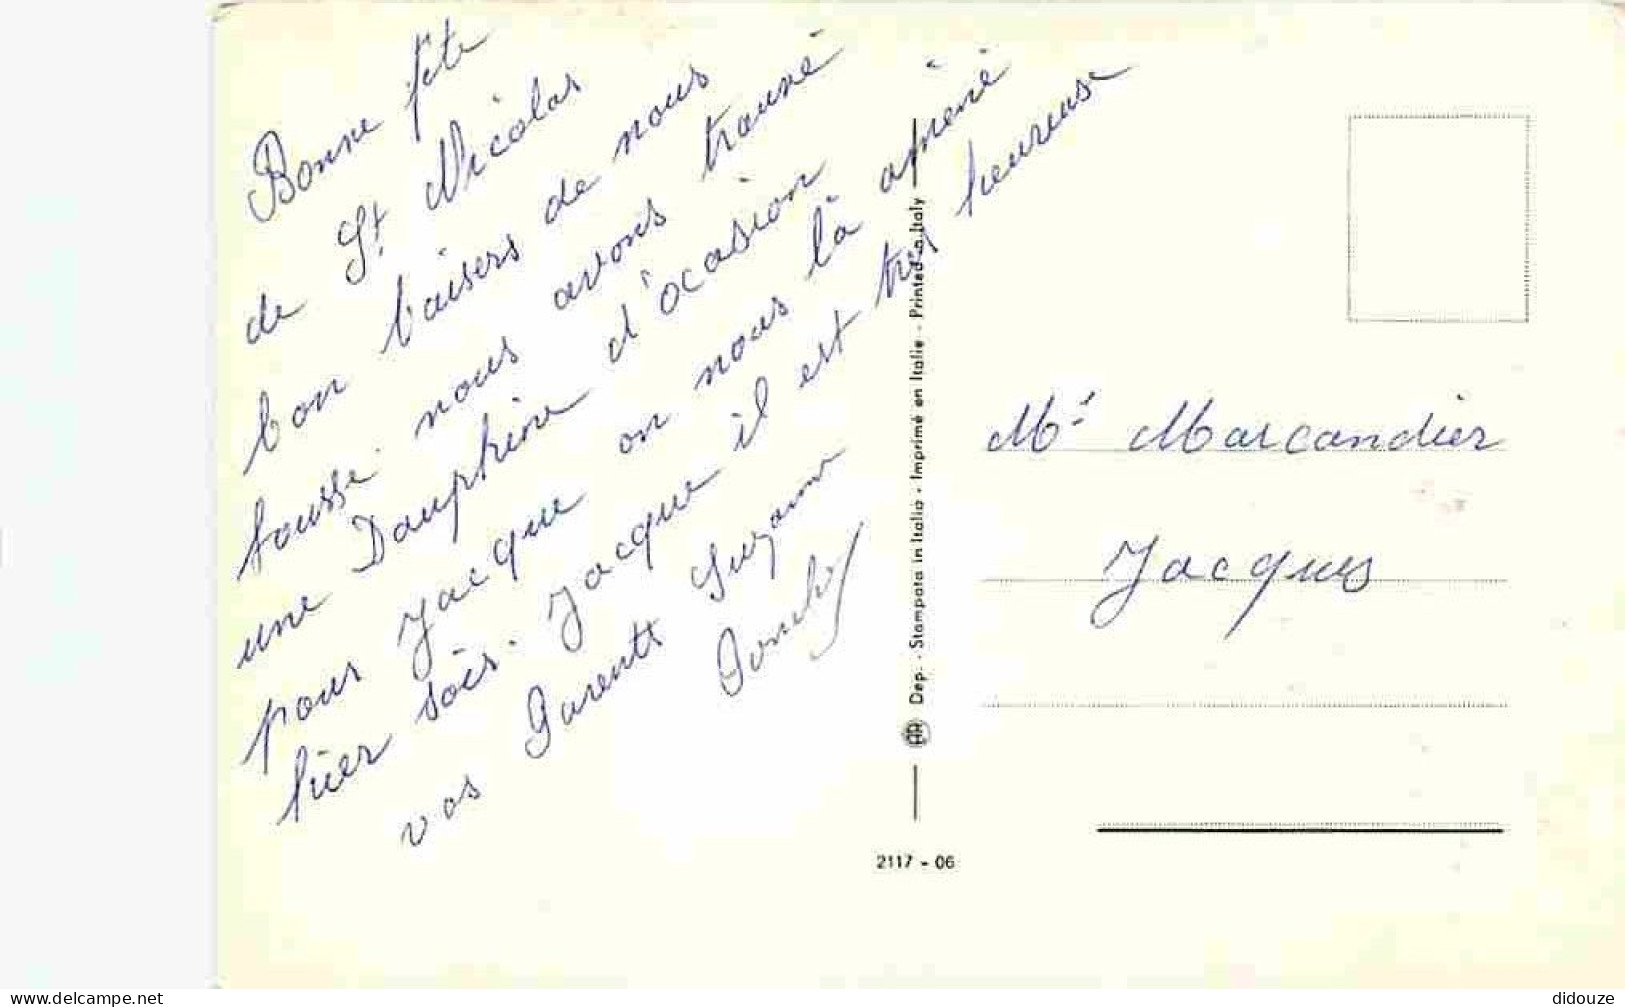 Bonne fête
de St Nicolas
bon baisers de nous
tousse nous avons trouvé
une Dauphine d'ocasion
pour Jacque on nous là amené
hier soir. Jacque il est tres heureuse
vos Parents Suzanne
Mr Marcandier
Jacques
Dep. - Stampato in Italia - Imprimé en Italie - Printed in Italy
2117 - 06
www.delcampe.net
didouze